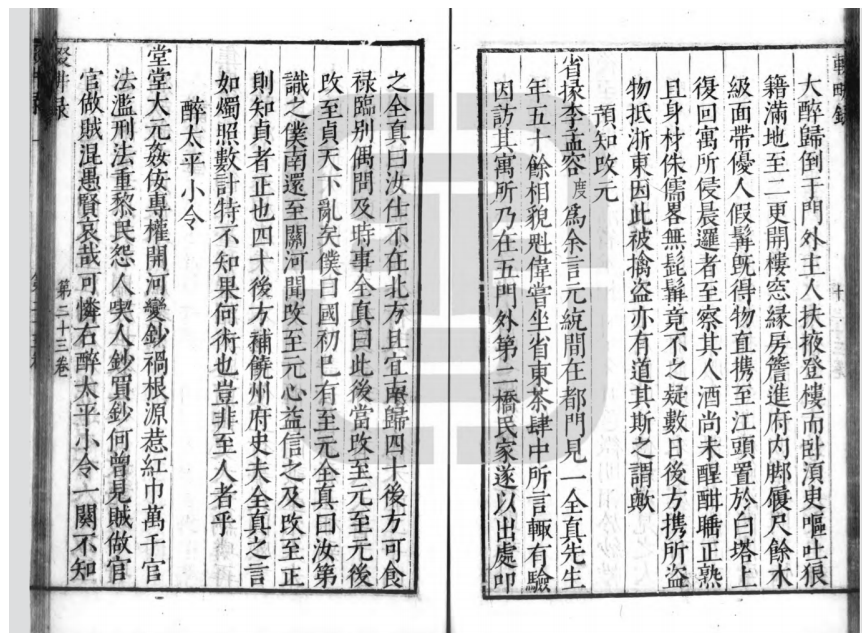 輟畊錄
大醉歸倒于門外主人扶掖登樓而卧湏臾嘔吐狼
籍滿地至二更開樓窓緣房簷進府内脚履尺餘木
級面帶優人假髯旣得物直携至江頭置於白塔上
復回寓所侵晨邏者至察其人酒尚未醒酣𪾶正熟
且身材侏儒畧無髭髯竟不之疑數日後方携所盗
物抵浙東因此被擒盗亦有道其斯之謂歟
預知攺元
省掾李孟容度爲余言元統間在都門見一全真先生
年五十餘相貌魁偉嘗坐省東茶肆中所言輙有驗
因訪其寓所乃在五門外第二橋民家遂以出處叩
之全真曰汝仕不在北方且宜南歸四十後方可食
禄臨别偶問及時事全真曰此後當攺至元至元後
攺至貞天下亂矣僕曰國初已有至元全真曰汝第
識之僕南還至關河聞攺至元心益信之及攺至正
則知貞者正也四十後方補饒州府史夫全真之言
如燭照數計特不知果何術也豈非至人者乎
醉太平小令
堂堂大元姦佞專權開河變鈔禍根源惹紅巾萬千官
法濫刑法重黎民怨人喫人鈔買鈔何曾見賊做官
官做賊混愚賢哀哉可憐右醉太平小令一闋不知
輟畊录
第二十三卷